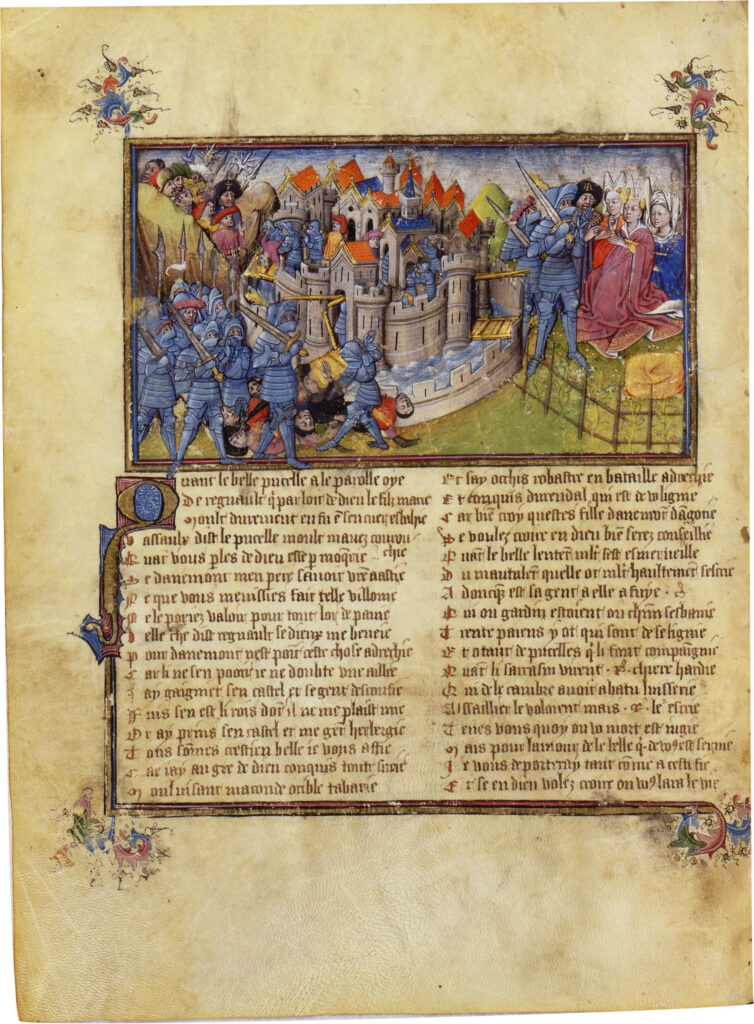 Quant le belle pucelle a le parolle oye
De regnault q̄ par loit de dieu le filz marie
Moult durement en fu ē sen cuer esbahie
Vassaulx dist le pucelle moult mauez
Quar vous ples de dieu est p moqrie
De danemont men pere
Se que vous menissies fait telle villonie
Ne le poriez valour pour tout lor de pauie
Belle che dist regnault se dieux me beneie
Pour danemont nest pour ceste chose adrechie
Car li ne sen pooir ie ne doubte vne aillie
Jay gaigniet sen castel et se gent desconfie
Puis sen est li rois dōt il ne me plaist mie
Or ay prins sen castel et me gēt herbergie
Tous sōmes crestien belle ie vous affie
Car iay au gre de dieu conquis toute surie
Et say occhis robastre en bataille adrechie
Et conquis durendal qui est de
Car biē croy questres fille danemont
Se voulez croire en dieu biē serez conseillie
Quāt le belle lentent mlt sest esmerueille
Du mautalent quelle ot mlt haultement sescrie
A doncqs est sa gent a elle afuye
Qui ou gardin estoient ou chūn sesbanie
Trente paiens y ot qui sont de se ligine
Et otant de pucelles q̄ li font compaignie
Quāt li sarasin virent .R. chiere hardie
Qui de le cambre auoit abatu
Assaillier le volrent mais . . le escrie
Tenes vous quoy ou vo mort est
Mais pour lamour de le belle q̄ de
Je vous deporteray tant come a ceste fie
Et se en dieu volez croire on vo9 lara le vie